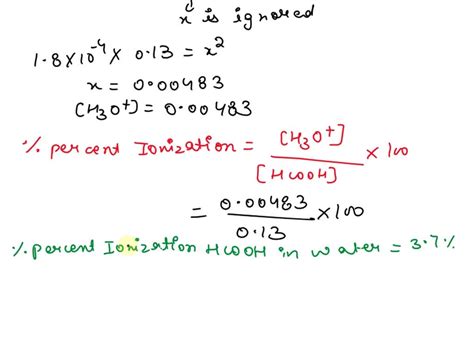 x is ignored
1.8×10⁻⁴ × 0.13 = x²
x = 0.00483
[H3O+] = 0.00483
% percent Ionization = [H3O+] / [HCOOH] × 100
= 0.00483 / 0.13 × 100
% percent Ionization HCOOH in water = 3.7%